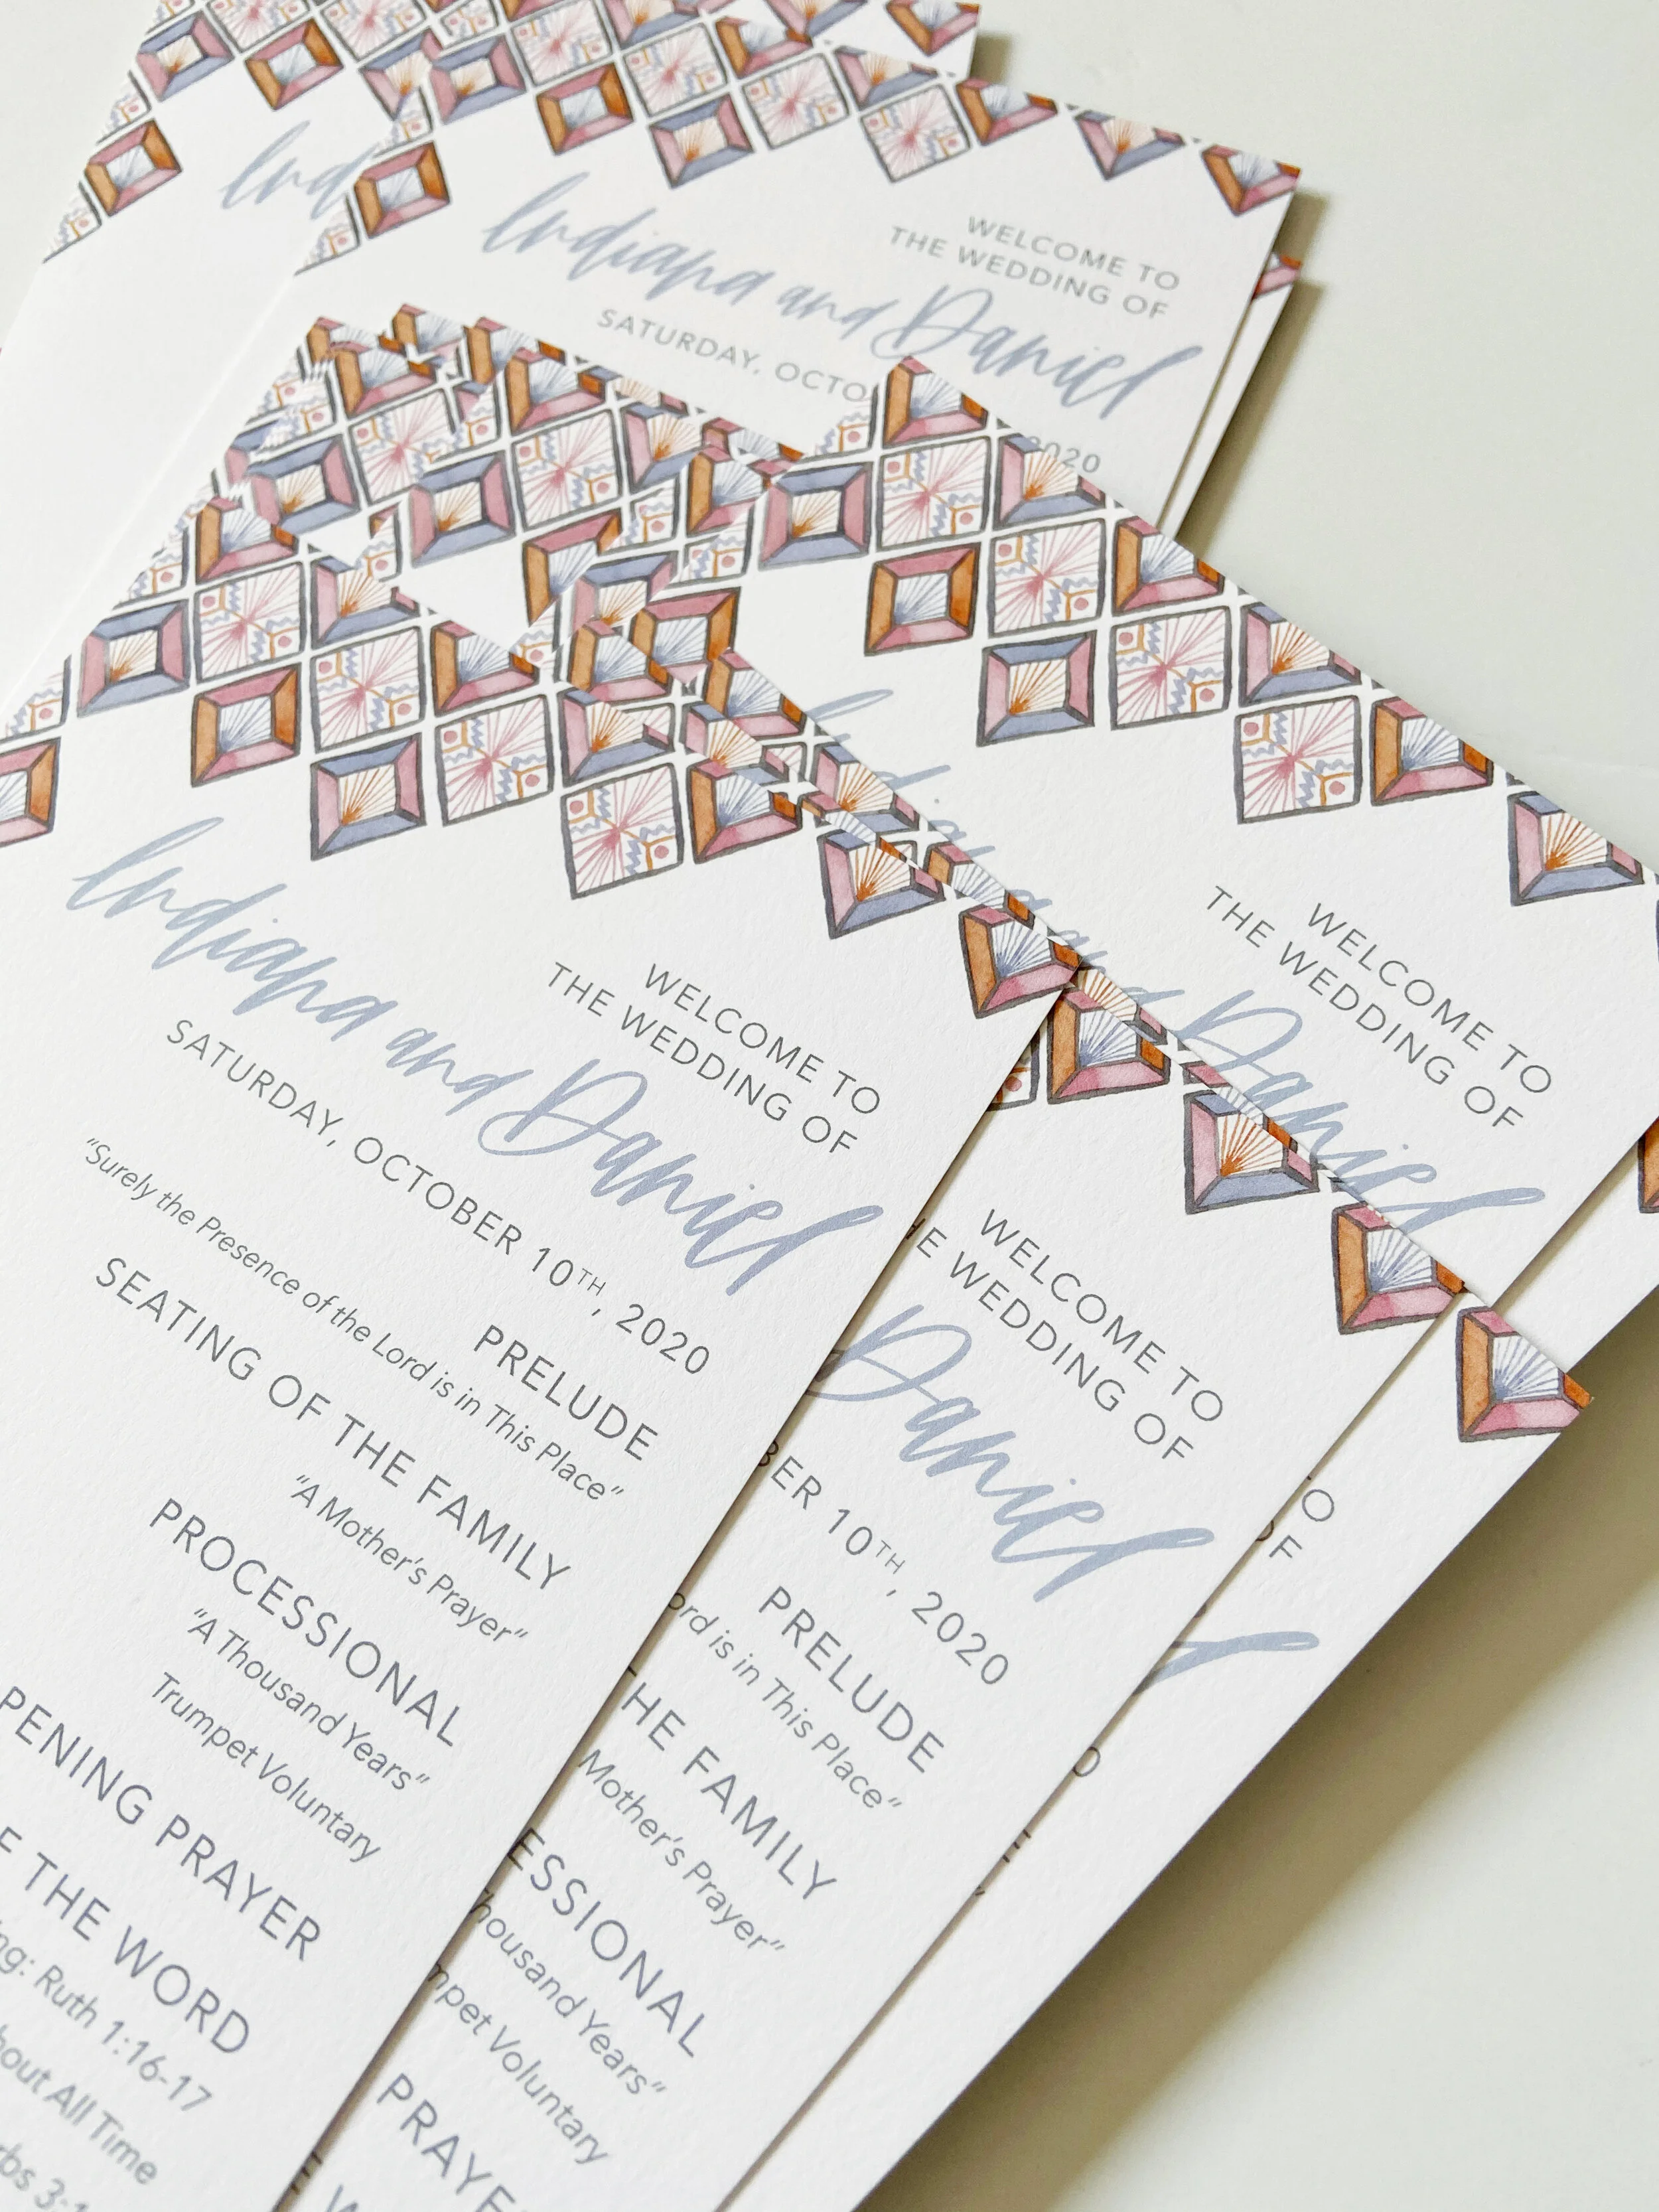 Ind
WELCOME TO
THE WEDDING OF
Indiana and Daniel
SATURDAY, OCTO
2020
WELCOME TO
THE WEDDING OF
Indiana and Daniel
SATURDAY, OCTOBER 10TH, 2020
PRELUDE
"Surely the Presence of the Lord is in This Place"
SEATING OF THE FAMILY
"A Mother's Prayer"
PROCESSIONAL
"A Thousand Years"
Trumpet Voluntary
PENING PRAYER
THE WORD
ng: Ruth 1:16-17
bout All Time
rbs 3:
WELCOME TO
THE WEDDING OF
Daniel
BER 10TH, 2020
PRELUDE
ord is in This Place"
HE FAMILY
Mother's Prayer"
ESSIONAL
housand Years"
mpet Voluntary
PRAYE
WELCOME TO
THE WEDDING OF
Indiana and Daniel
TO
OF